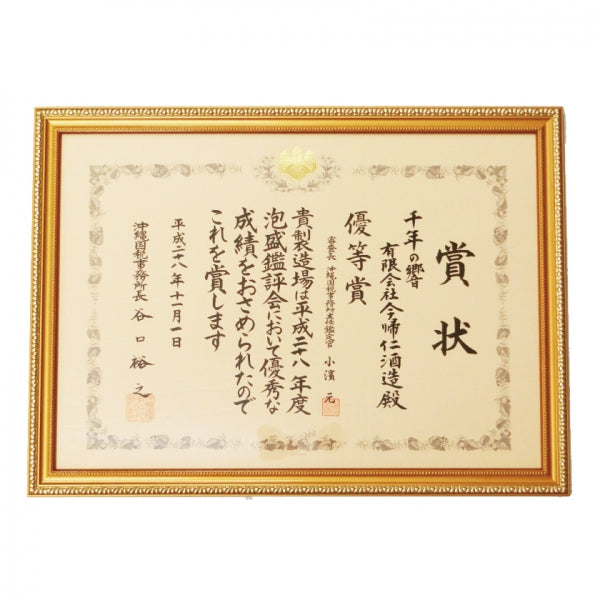 賞状
千年の響
有限会社今帰仁酒造殿
優等賞
審査長 沖縄国税事務所主任鑑定官 小濱 元
貴製造場は平成二十八年度
泡盛鑑評会において優秀な
成績をおさめられたので
これを賞します
平成二十八年十一月一日
沖縄国税事務所長 谷口裕之